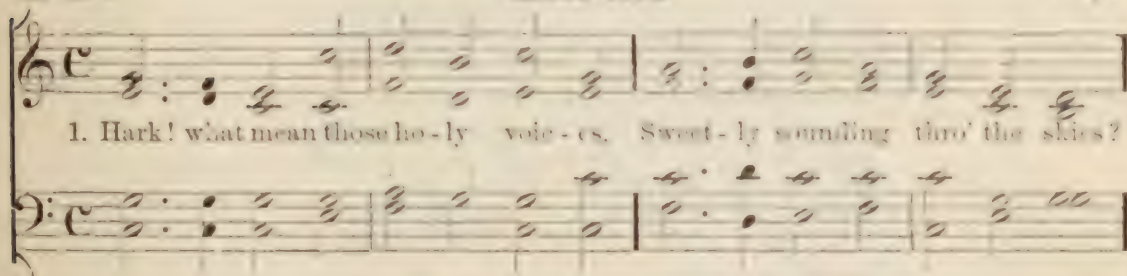 1. Hark! what mean those ho - ly voic - es, Sweet - ly sounding thro' the skies?